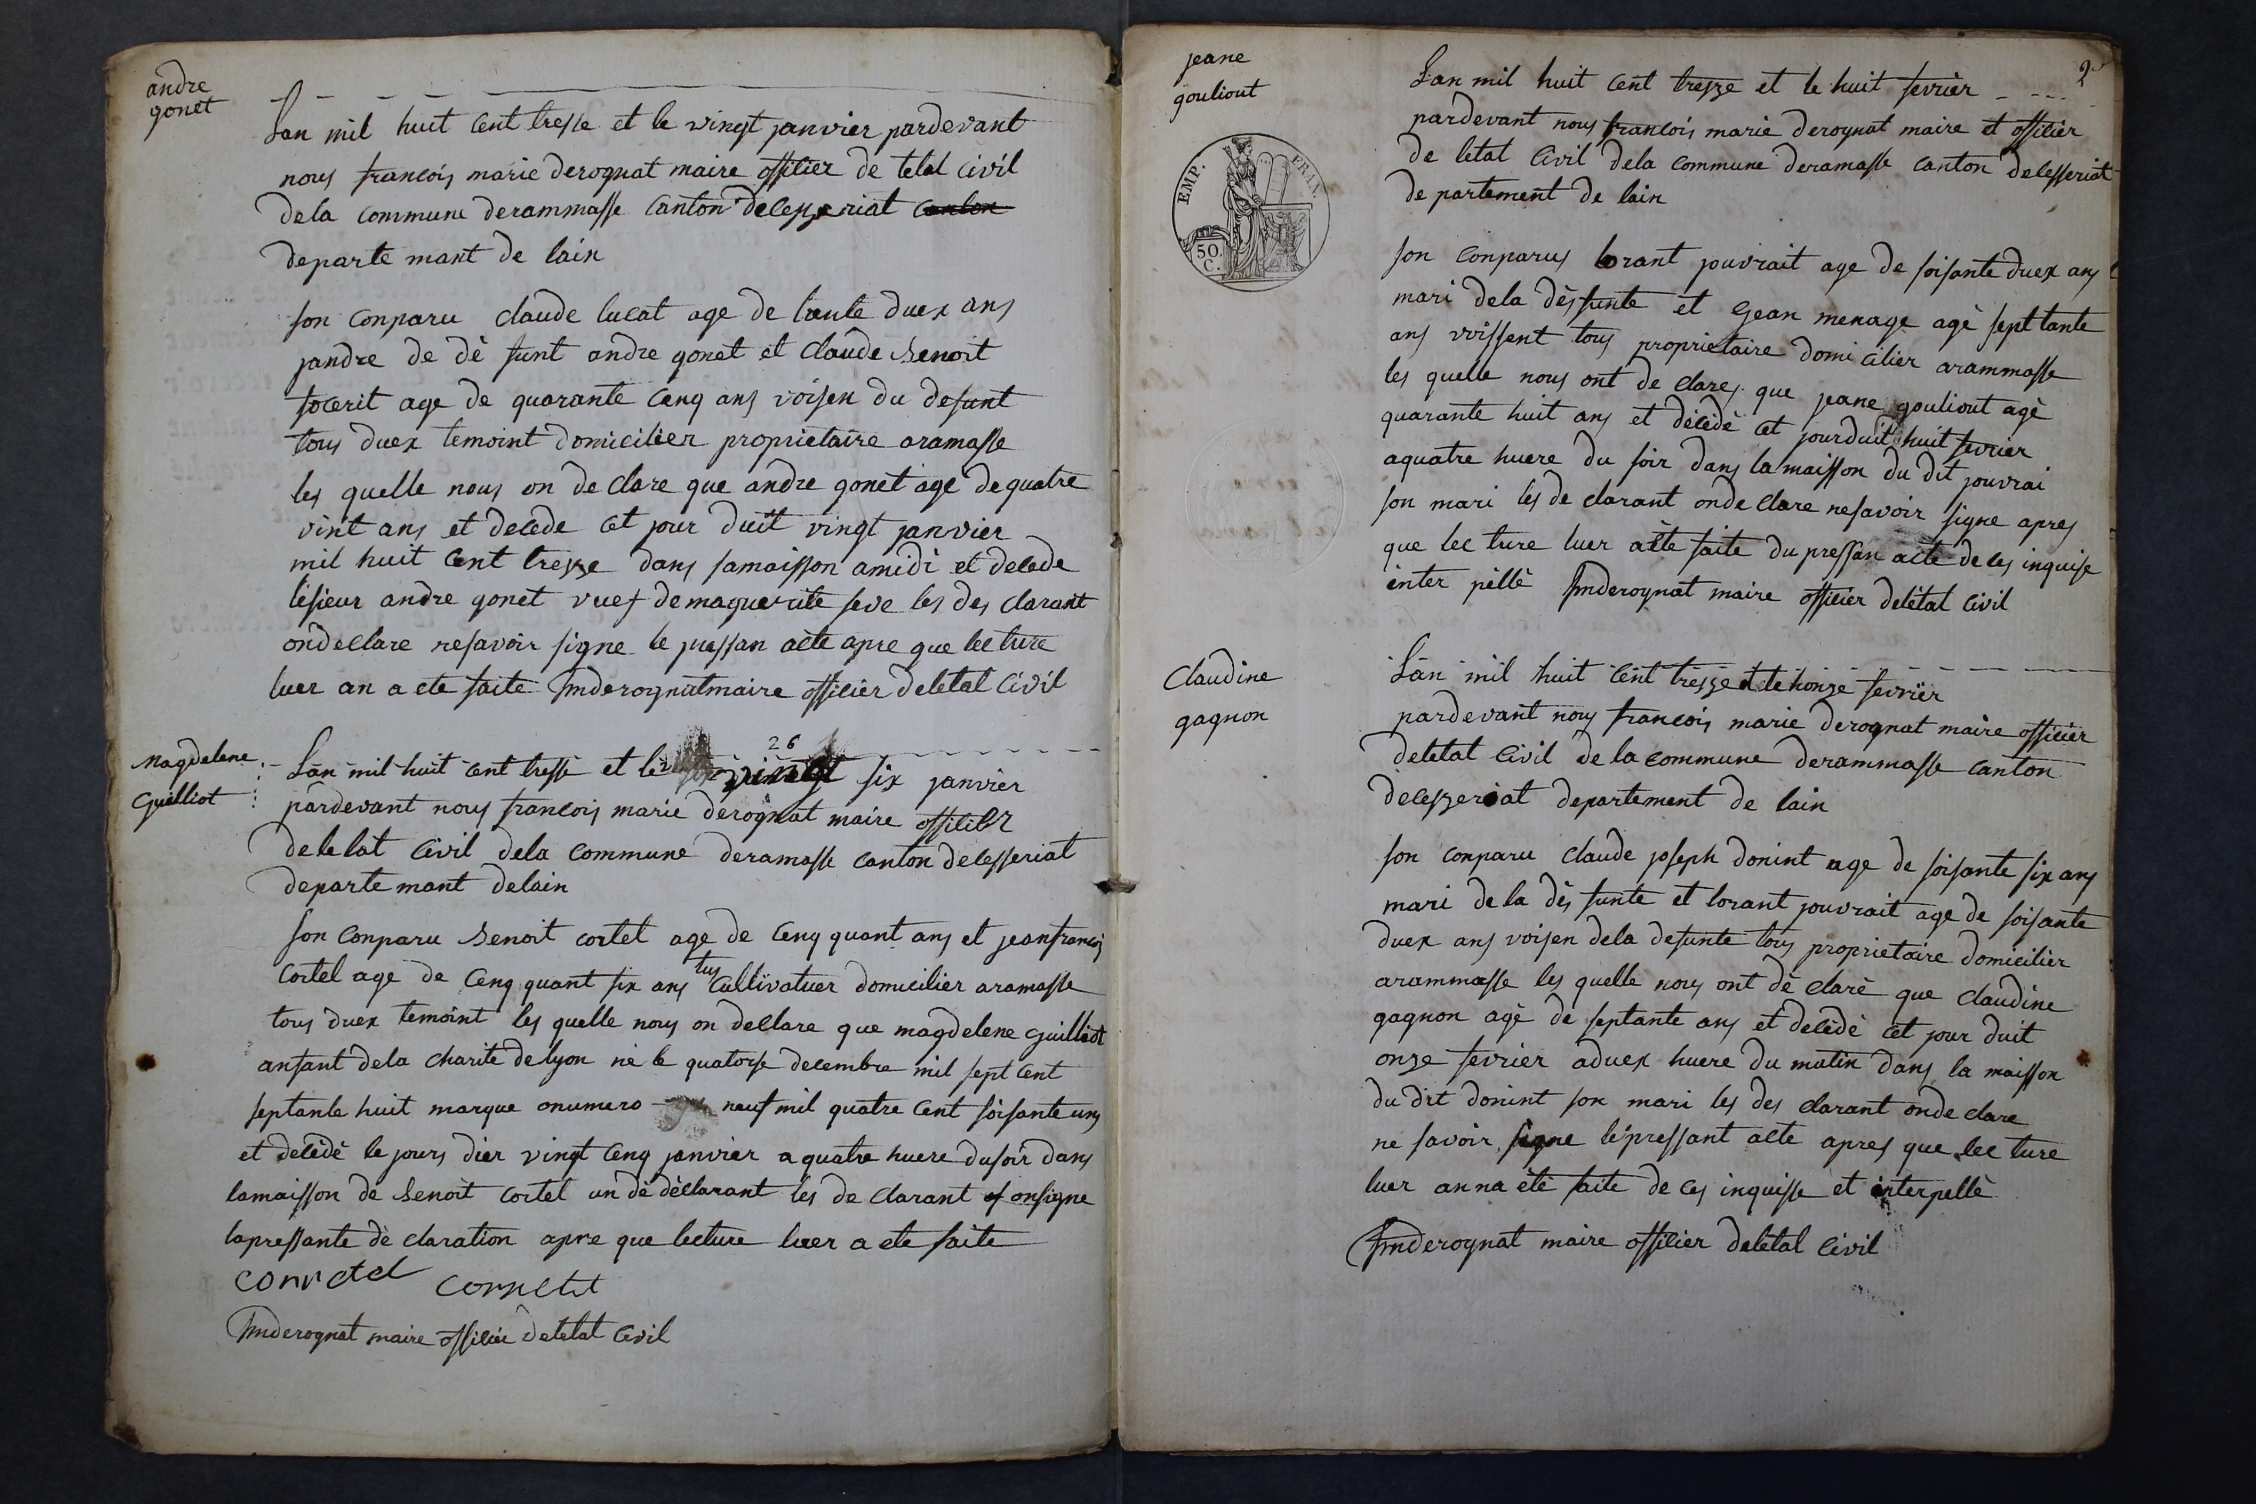 andre
gonet
Lan mil huit cent tresse et le vingt janvier pardevant
nous francois marie derognat maire offilier de letat civil
dela commune derammasse canton delesseriat canton
departe mant de lain
son conparu claude lucat age de trente duex ans
jandre de dè funt andre gonet et claude Benoit
socerit age de quarante cenq ans voisen du defunt
tous duex temoint domicilier proprietaire aramasse
les quelle nous on de clare que andre gonet age de quatre
vint ans et decede cet jour duit vingt janvier
mil huit cent trezze dans samaisson amidi et decede
lesieur andre gonet vuef demaguerite seve les des clarant
ondeclare nesavoir signe le pressan acte apre que lecture
luer an a ete faite fmderognatmaire offilier deletat civil
Magdelene
Guilliot
26
Lan mil huit cent tresse et le vingt six janvier
pardevant nous francois marie derognat maire offilier
deletat civil dela commune deramasse canton delesseriat
departe mant delain
son conparu Benoit cortet age de cenq quant ans et jeanfrancois
cortel age de cenq quant six ans tus cullivatuer domicilier aramasse
tous duex temoint les quelle nous on declare que magdelene Guilliot
anfant dela charite de lyon nè le quatorse decembre mil sept cent
septante huit marque onumero neuf mil quatre cent soisante uns
et dècèdè le jours dier vingt cenq janvier a quatre huere dusoir dans
lamaisson de Benoit cortet un dè dèclarant les de clarant onsigne
lapressante dè claration apre que lecture luer a ete faite
corrctel cornctet
fmderognat maire offilier deletat civil
2
jeane
gouliout
EMP. FRAN.
50.
C.
Lan mil huit cent trezze et le huit fevrièr
pardevant nous francois marie derognat maire et offilièr
de letat civil dela commune deramasse canton delesseriat
de partement de lain
son conparus lorant jouvrait age de soisante duex ans
mari dela dèsfunte et Gean menage agè septtante
ans voissent tous proprietaire domi cilier arammasse
les quelle nous ont de clares que jeane gouliout agè
quarante huit ans et dècèdè cet jourduit huit fevrier
aquatre huere du soir dans lamaisson du dit jouvrai
son mari les de clarant onde clare nesavoir signe apres
que lec ture luer a ète faite du pressan acte de ces inquise
inter pèllè fmderognat maire offilier delètat civil
Claudine
gagnon
Lan mil huit cent trezze et le honze fevrièr
pardevant nous francois marie derognat maire offilier
deletat civil de la commune derammasse canton
delezzeriat departement de lain
son conparu claude joseph donint age de soisante six ans
mari de la dès funte et lorant jouvrait age de soisante
duex ans voisen dela defunte tous proprietaire domicilier
arammasse les quelle nous ont dè clarè que claudine
gagnon agè de septante ans et decèdè cet jour duit
onze fevrier aduex huere du matin dans la maisson
du dit donint son mari les des clarant onde clare
ne savoir signe le pressant acte apres que lec ture
luer anna ètè faite de ces inquisse et interpellè
fmderognat maire offilier deletat civil